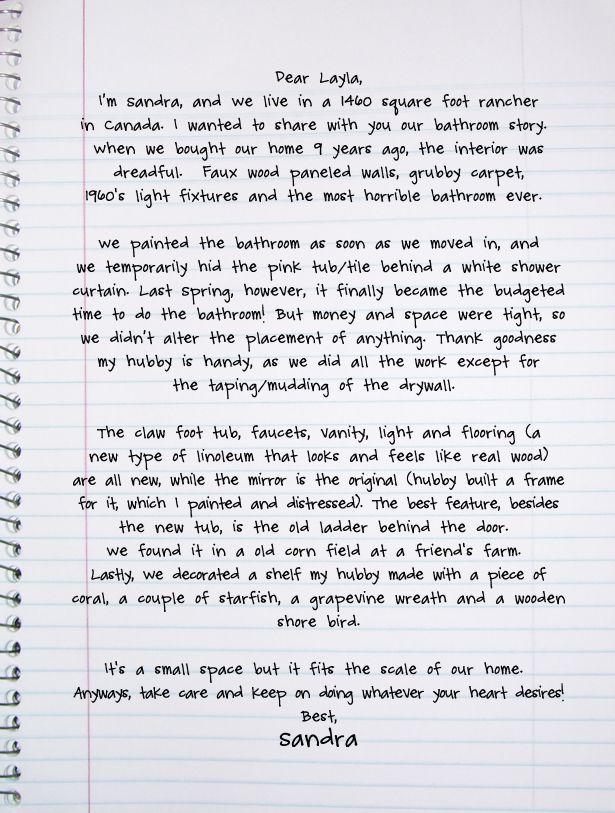 Dear Layla,
I'm Sandra, and we live in a 1460 square foot rancher
in Canada. I wanted to share with you our bathroom story.
When we bought our home 9 years ago, the interior was
dreadful. Faux wood paneled walls, grubby carpet,
1960's light fixtures and the most horrible bathroom ever.
We painted the bathroom as soon as we moved in, and
we temporarily hid the pink tub/tile behind a white shower
curtain. Last Spring, however, it finally became the budgeted
time to do the bathroom! But money and space were tight, so
we didn't alter the placement of anything. Thank goodness
my hubby is handy, as we did all the work except for
the taping/mudding of the drywall.
The claw foot tub, faucets, vanity, light and flooring (a
new type of linoleum that looks and feels like real wood)
are all new, while the mirror is the original (hubby built a frame
for it, which I painted and distressed). The best feature, besides
the new tub, is the old ladder behind the door.
We found it in a old corn field at a friend's farm.
Lastly, we decorated a shelf my hubby made with a piece of
coral, a couple of starfish, a grapevine wreath and a wooden
shore bird.
It's a small space but it fits the scale of our home.
Anyways, take care and keep on doing whatever your heart desires!
Best,
Sandra